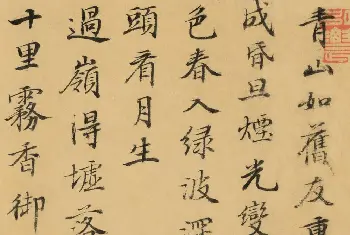 青山如舊友重
成昏旦煙光變
色春入绿波深
頭看月生
過嶺得墟落
十里霧香御